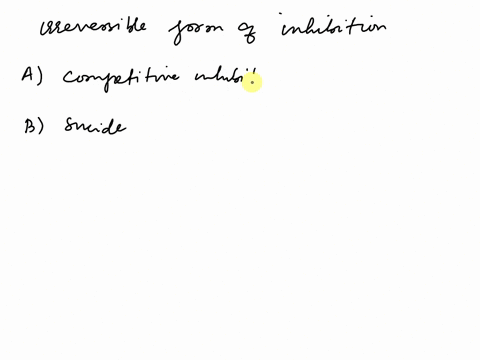 irreversible form of inhibition
A) Competitive inhibit
B) Suicide